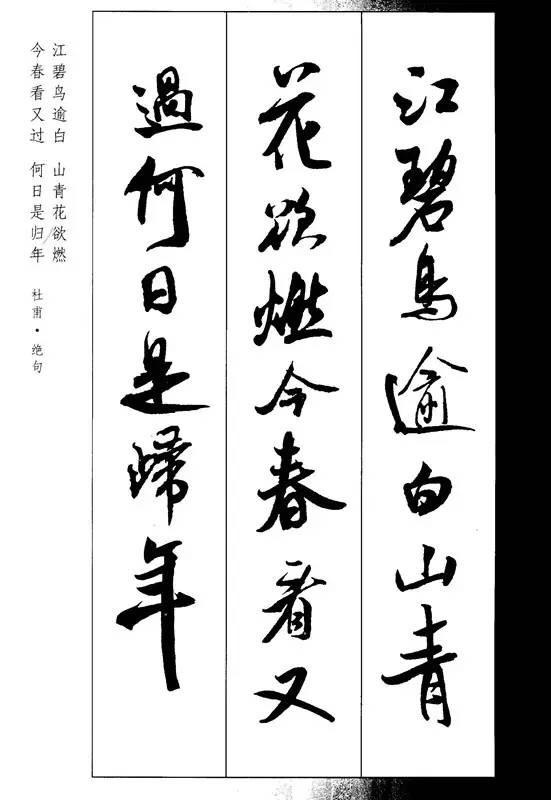 江碧鸟逾白 山青花欲燃
今春看又过 何日是归年
杜甫·绝句
江碧鳥逾白山青
花欲燃今春看又
過何日是歸年